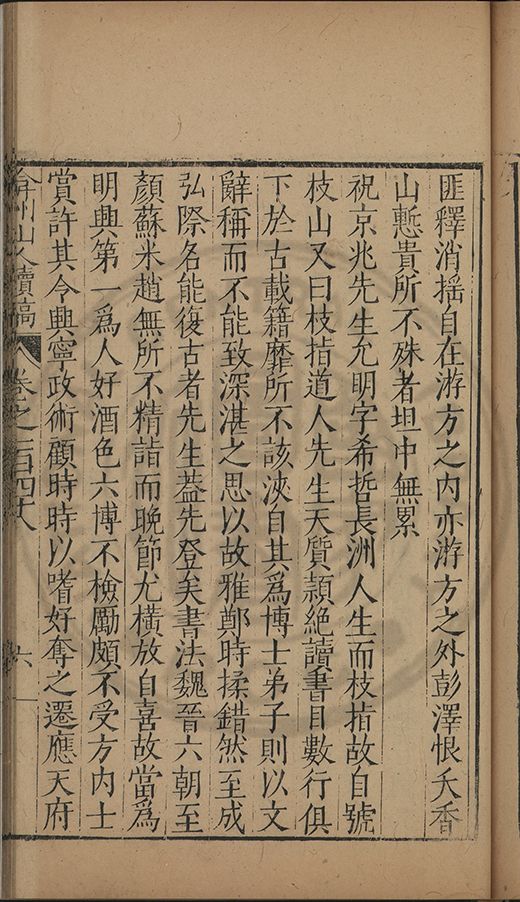 匪釋消揺自在游方之内亦游方之外彭澤恨夭香
山慙貴所不殊者坦中無累
祝京兆先生允明字希哲長洲人生而枝指故自號
枝山又曰枝指道人先生天質頴絶讀書目數行俱
下於古載籍靡所不該浹自其爲博士弟子則以文
辭稱而不能致深湛之思以故雅鄭時揉錯然至成
弘際名能復古者先生葢先登矣書法魏晉六朝至
顏蘇米趙無所不精詣而晚節尤橫放自喜故當爲
明興第一爲人好酒色六博不檢勵頗不受方内士
賞許其令興寧政術顧時時以嗜好奪之遷應天府
弇州山人續稿 卷之一百四十八 六